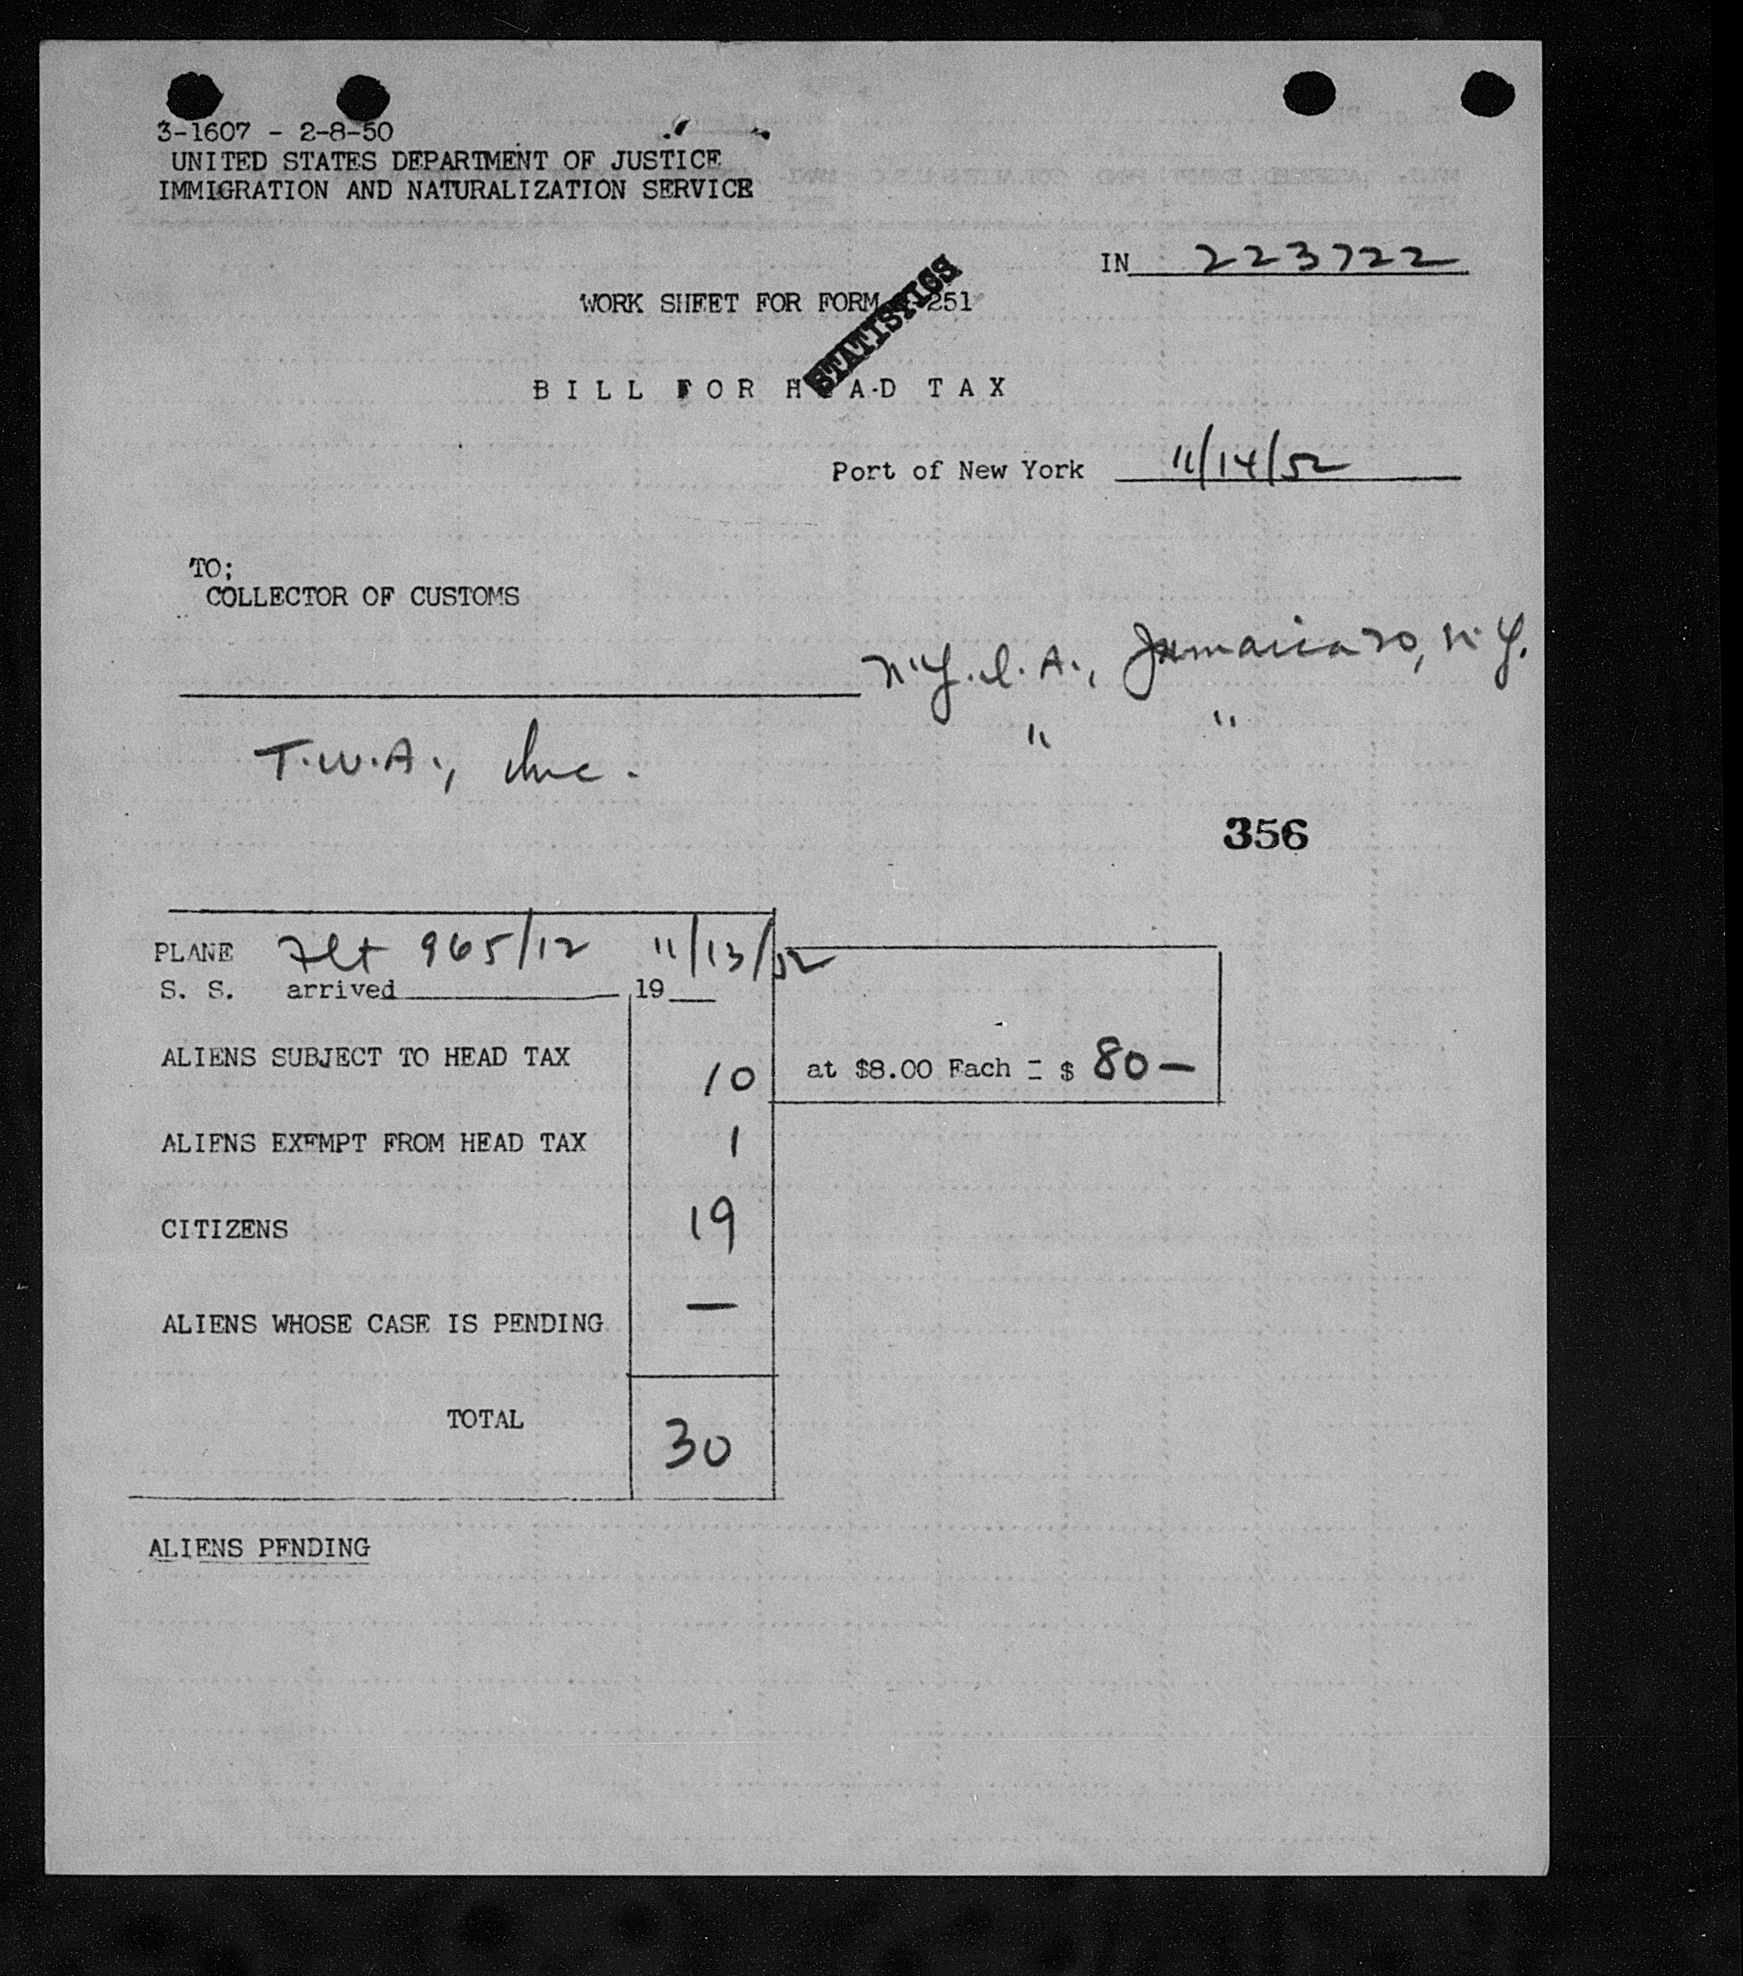 3-1607 - 2-8-50
UNITED STATES DEPARTMENT OF JUSTICE
IMMIGRATION AND NATURALIZATION SERVICE
IN 223722
WORK SHEET FOR FORM 251
STATISTICS
BILL FOR HEAD TAX
Port of New York 11/14/52
TO;
COLLECTOR OF CUSTOMS
N.Y.I.A., Jamaica 30, N.Y.
" "
T.W.A., Inc.
356
PLANE Flt 965/12 11/13/52
S. S. arrived 19
ALIENS SUBJECT TO HEAD TAX 10 at $8.00 Each = $ 80 —
ALIENS EXEMPT FROM HEAD TAX 1
CITIZENS 19
ALIENS WHOSE CASE IS PENDING —
TOTAL 30
ALIENS PENDING